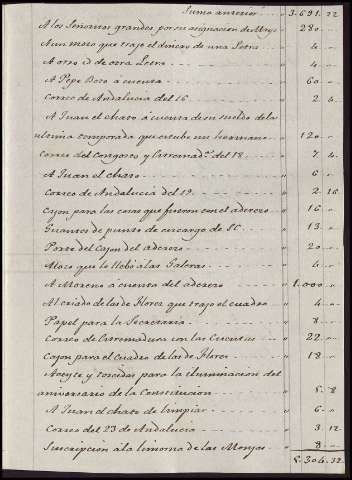 Suma anterior - - - " 3.691. 22
A los Señoritos grandes, por su asignacion de Mayo " 280 - "
A un mozo que trajo el dinero de una Letra - - " 4 - "
A otro id de otra Letra - - - " 4 - "
A Pepe Bozo á cuenta - - - " 60 - "
Correo de Andalucia del 16 - - - " 2. 4.
A Juan el chato á cuenta de su sueldo de la
ultima temporada que estube su hermano - - " 120 - "
Correo del Congoreo y Estremad.ª del 18 - - " 7. 4.
A Juan el chato - - - " 6 - "
Correo de Andalucia del 19 - - - " 2. 16
Cajon para las cosas que fueron con el aderezo " 16 - "
Guantes de punto de encargo de SE - - " 13 - "
Porte del Cajon del aderezo - - - " 20 - "
Mozo que lo llebó á las Galeras - - - " 4 - "
A Moreno á cuenta del aderezo - - - " 1.000 - "
Al criado de las de Flores que trajo el cuadro " 4 - "
Papel para la Secretaria - - - " 8 - "
Correo de Estremadura con las Cuentas - - " 22 - "
Cajon para el Cuadro de las de Flores - - " 18 - "
Aceyte y torcidas para la iluminacion del
aniversario de la Constitucion - - - " 5. 8
A Juan el chato de limpiar - - - " 6 - "
Correo del 23 de Andalucia - - - " 3. 12
Suscripcion á la limosna de las Monjas - - " 8 - "
5.304. 32